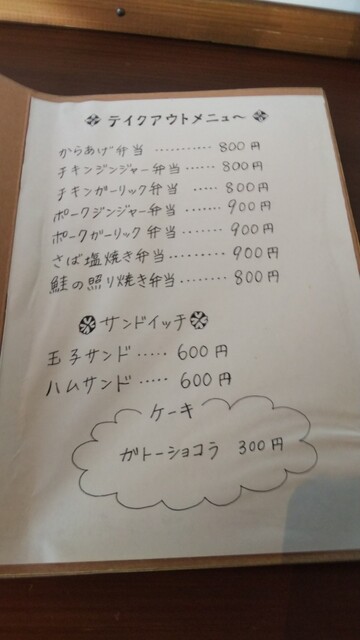 テイクアウトメニュー
からあげ弁当 ………… 800円
チキンジンジャー弁当 …… 800円
チキンガーリック弁当 ….. 800円
ポークジンジャー弁当 …… 900円
ポークガーリック弁当 ……… 900円
さば塩焼き弁当 ……… 900円
鮭の照り焼き弁当 ……… 800円
サンドイッチ
玉子サンド ….. 600円
ハムサンド ….. 600円
ケーキ
ガトーショコラ 300円